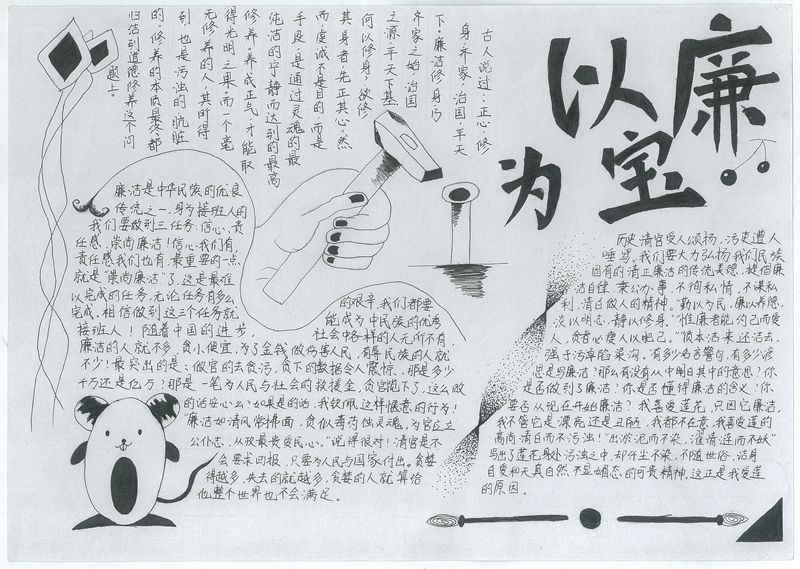 以廉为宝
古人说过：正心，修
身，齐家，治国，平天
下。廉洁修身，乃
齐家之始，治国
之源，平天下基。
何以修身，欲修
其身者，先正其心。然
而虔诚不是目的，而是
手段，是通过灵魂的最
纯洁的宁静而达到的最高
修养。养成正气，才能取
得光明之果。而一个毫
无修养的人，其所得
到，也是污浊的肮脏
的。修养的本质最终都
归结到道德修养这个问
题上。
廉洁是中华民族的优良
传统之一，身为接班人的
我们要做到三任务：信心，责
任感，崇尚廉洁！信心我们有，
责任感我们也有，最重要的一点
就是“崇尚廉洁”了，这是最难
以完成的任务，无论任务有多么
完成，相信做到这三个任务就
接班人！随着中国的进步，
廉洁的人就不多，贪小便宜，为了金钱做伤害人民，有辱民族的人就
不少！最突出的是：做官的去贪污，贪下的数据令人震惊，那是多少
千万还是亿万？那是一笔为人民与社会的救援金，贪官能下了，这么做
的话安心么？如果是的话，我钦佩这样惬意的行为！
“廉洁如清风常拂面，贪似毒药蚀灵魂，为官应立
公仆志，从政最贵爱民心。”说得很对！清官是不
会要求回报，只要为人民与国家付出。贪婪
得越多，失去的就越多，贪婪的人就算给
他整个世界也不会满足。
的艰辛，我们都要
能成为中民族的优秀
社会中各样的人无所不有
历史清官受人颂扬，污吏遭人
唾骂，我们要大力弘扬我们民族
固有的清正廉洁的传统美德，提倡廉
洁自律，秉公办事，不徇私情，不谋私
利，清白做人的精神。“勤以为民，廉以养德，
淡以明志，静以修身。”“惟廉者能约己而爱
人，贪者必瘦人以肥己。”“质本洁来还洁去，
强于污淖陷渠沟，有多少名言警句，有多少游
思是写廉洁？那么有没有从中明白其中的意思？你
是否做到了廉洁？你是否懂得廉洁的含义？你
要否从现在开始廉洁？我喜爱莲花，只因它廉洁，
我不管它是漂亮还是丑陋，我都不在意，我喜爱莲的
高尚清白而不污浊！“出淤泥而不染，濯清涟而不妖”
写出了莲花身处污浊之中，却仟尘不染，不随世俗，洁身
自爱和天真自然不显媚态的可贵精神，这正是我爱莲
的原因。